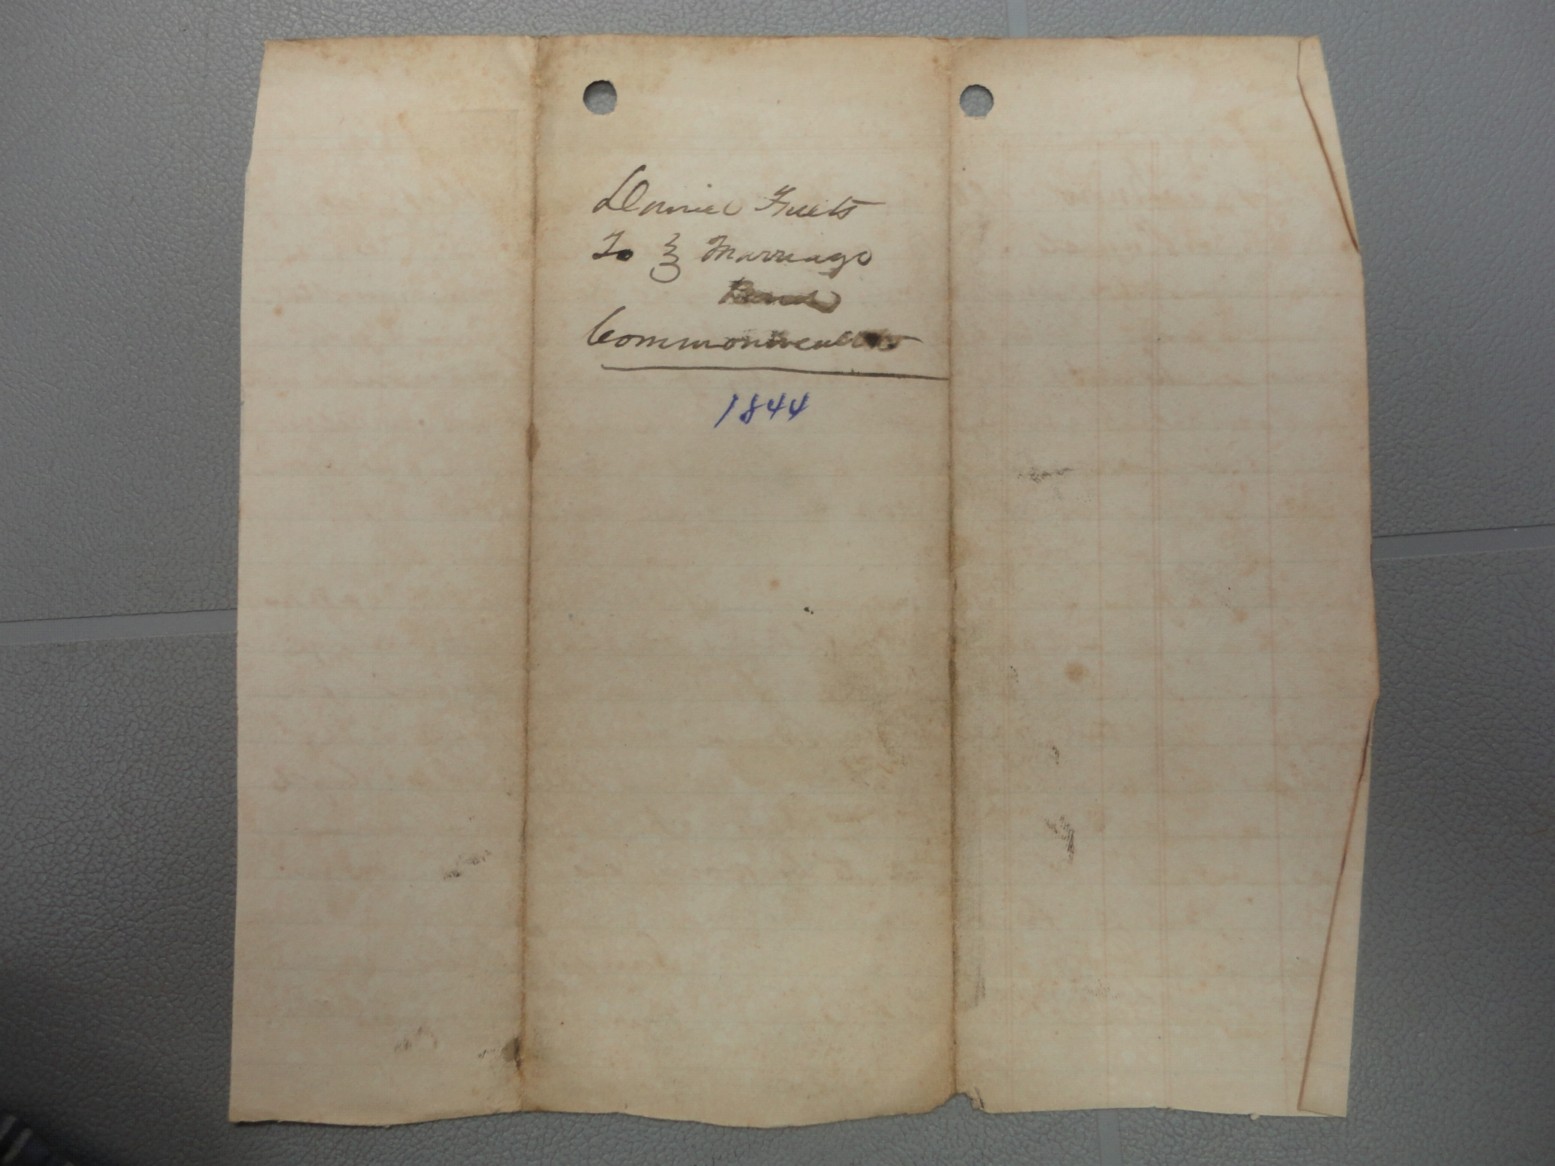 Daniel Fuels
To } Marriage
Bond
Commonwealth
1844